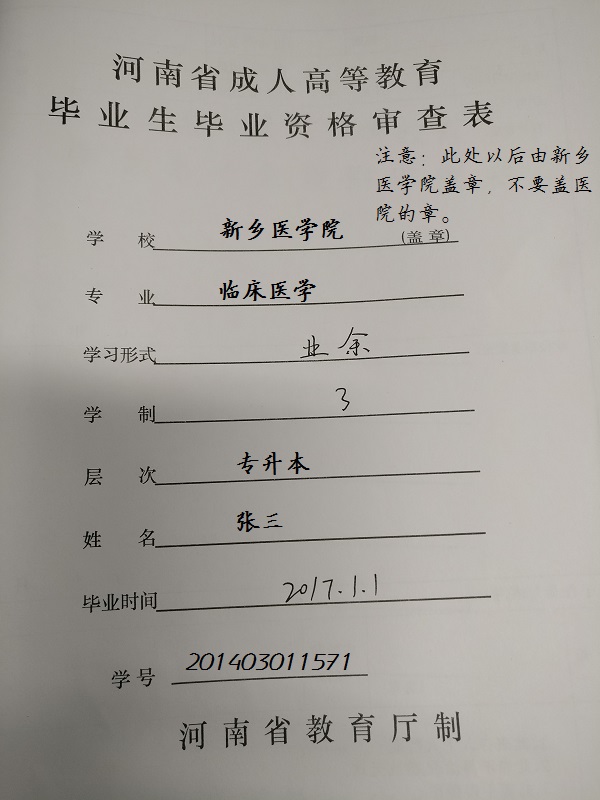 河南省成人高等教育
毕业生毕业资格审查表
注意：此处以后由新乡
医学院盖章，不要盖医
院的章。
学 校 新乡医学院 (盖章)
专 业 临床医学
学习形式 业余
学 制 3
层 次 专升本
姓 名 张三
毕业时间 2017.1.1
学号 201403011571
河南省教育厅制